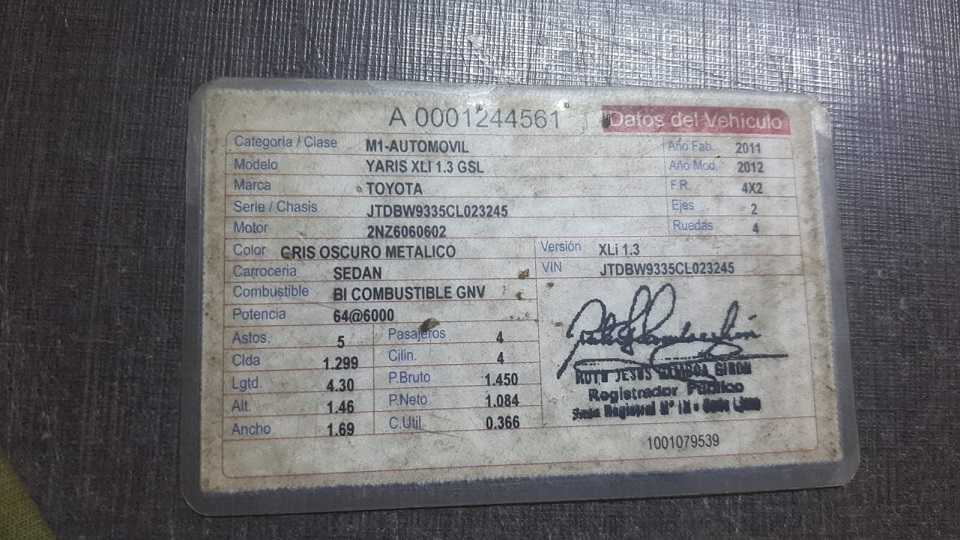 A 0001244561 Datos del Vehículo
Categoria / Clase M1-AUTOMOVIL Año Fab. 2011
Modelo YARIS XLI 1.3 GSL Año Mod. 2012
Marca TOYOTA F.R. 4X2
Serie / Chasis JTDBW9335CL023245 Ejes 2
Motor 2NZ6060602 Ruedas 4
Color GRIS OSCURO METALICO Versión XLi 1.3
Carroceria SEDAN VIN JTDBW9335CL023245
Combustible BI COMBUSTIBLE GNV
Potencia 64@6000
Astos. 5 Pasajeros 4
Clda 1.299 Cilin. 4
Lgtd. 4.30 P.Bruto 1.450
Alt. 1.46 P.Neto 1.084
Ancho 1.69 C.Util 0.366
JESUS GAMBOA GIRON
Registrador Público
Registral Nº IX - Sede Lima
1001079539